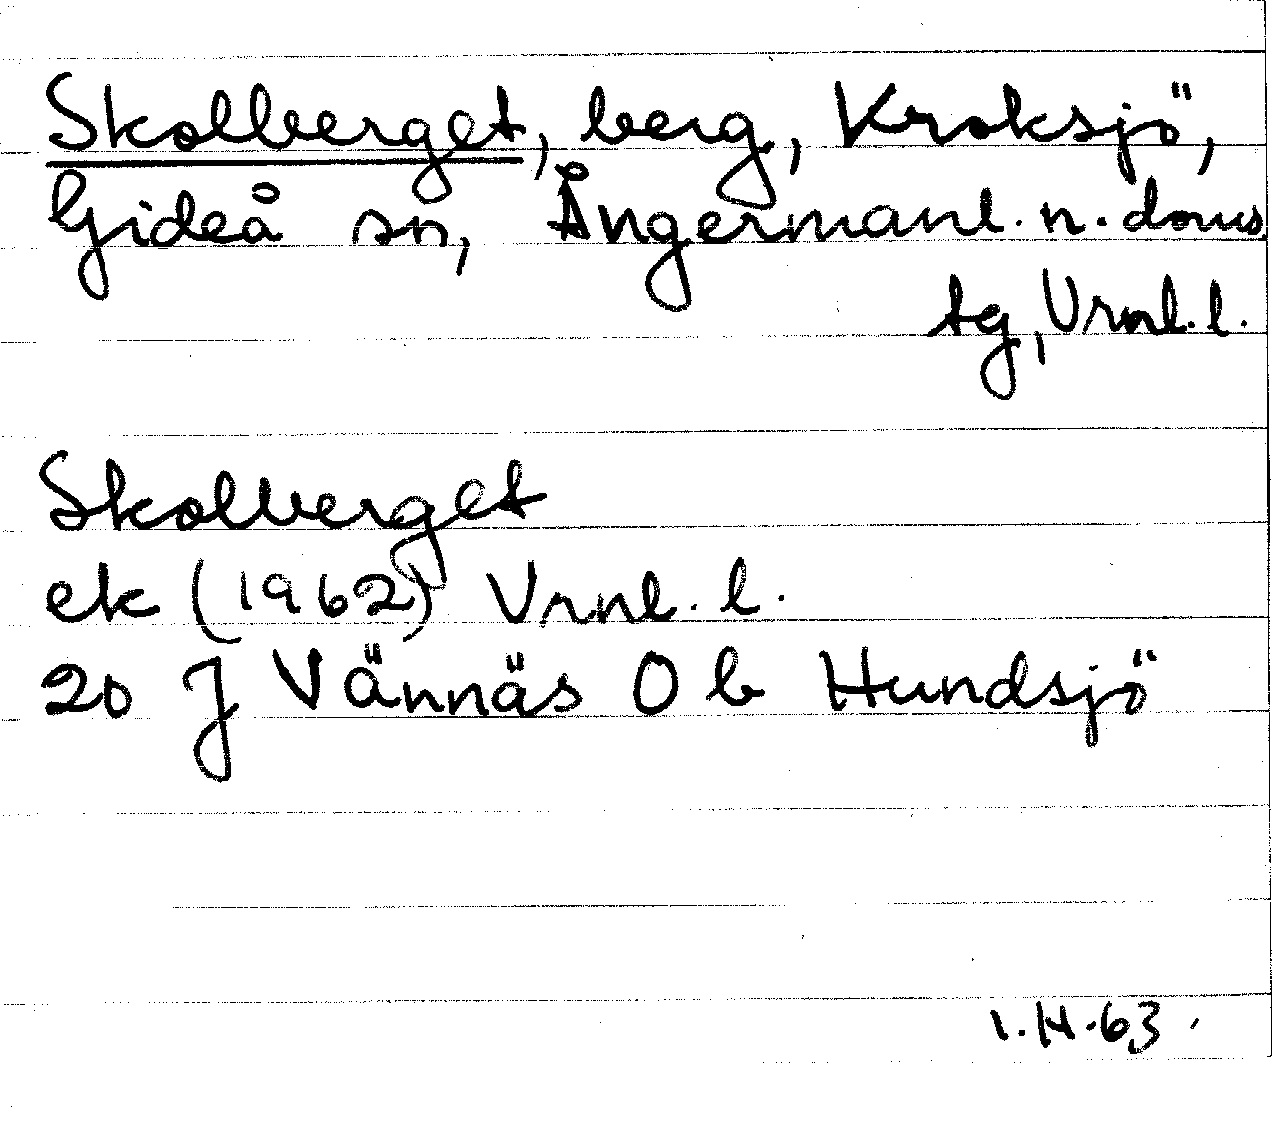 Skolberget, berg, Kroksjö,
Gideå sn, Ångermanl. n. doms
tg, Vrnl. l.
Skolberget
ek (1962) Vrnl. l.
20 J Vännäs O b Hundsjö
1.H.63.